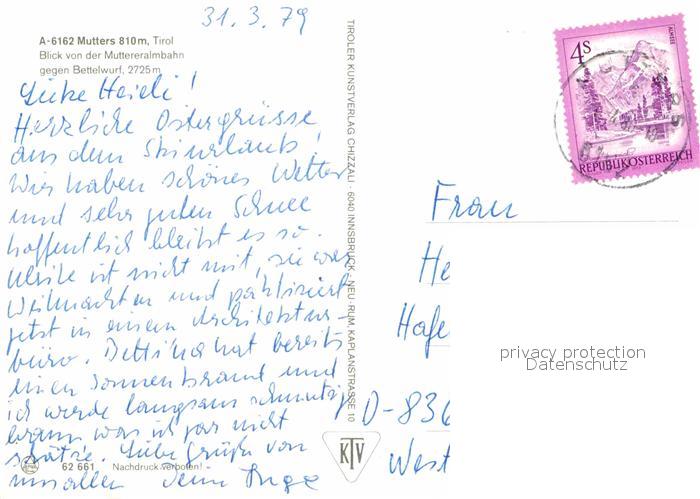 31. 3. 79
A-6162 Mutters 810m, Tirol
Blick von der Muttereralmbahn
gegen Bettelwurf, 2725m
Liebe Heidi!
Herzliche Ostergrüsse
aus dem Skiurlaub!
Wir haben schönes Wetter
und sehr guten Schnee
hoffentlich bleibt es so.
Ulrike ist nicht mit, sie war
Weihnachten und praktiziert
jetzt in einem Architektur-
büro. Bettina hat bereits
einen Sonnenbrand und
ich werde langsam schmutzig
braun was ich gar nicht
schätze. Liebe Grüße von
uns allen Deine Inge
62 661 Nachdruck verboten!
TIROLER KUNSTVERLAG CHIZZALI · 6040 INNSBRUCK - NEU-RUM, KAPLANSTRASSE 10
KTV
4S
REPUBLIK ÖSTERREICH
Frau
He
Hafe
privacy protection
Datenschutz
D-836
West